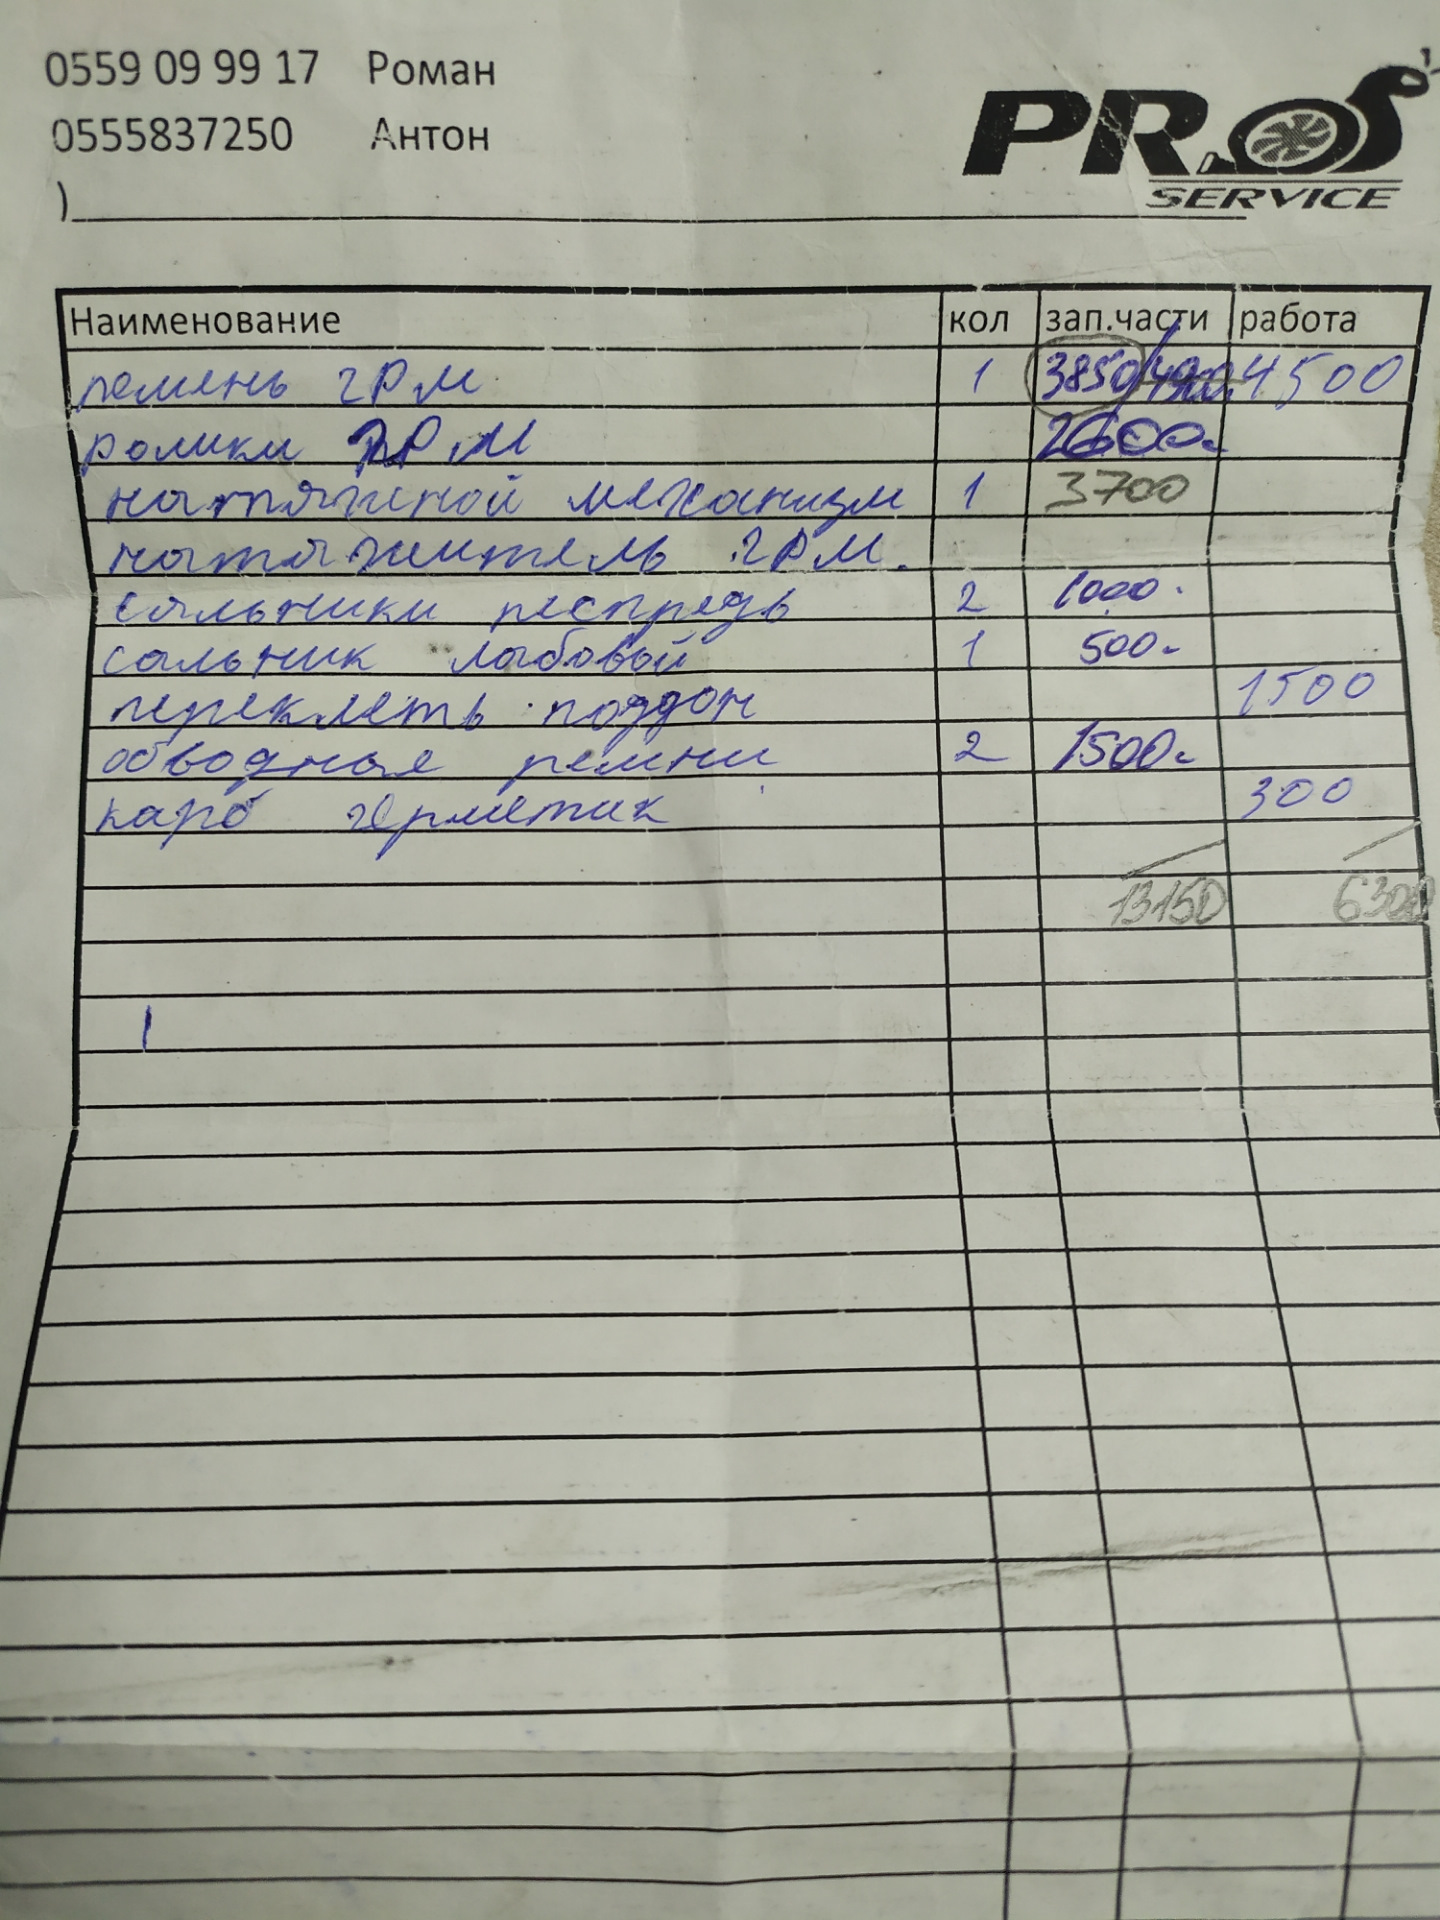 0559 09 99 17 Роман
0555837250 Антон
PROS
SERVICE
)
Наименование кол зап.части работа
ремень ГРМ 1 3850/4900 4500
ролики ГРМ 2600-
натяжной механизм 1 3700
натяжитель ГРМ.
сальники респредь 2 1000-
сальник лабовой 1 500-
переклеть поддон 1500
обводная ремни 2 1500-
карб герметик 300
13150 6300